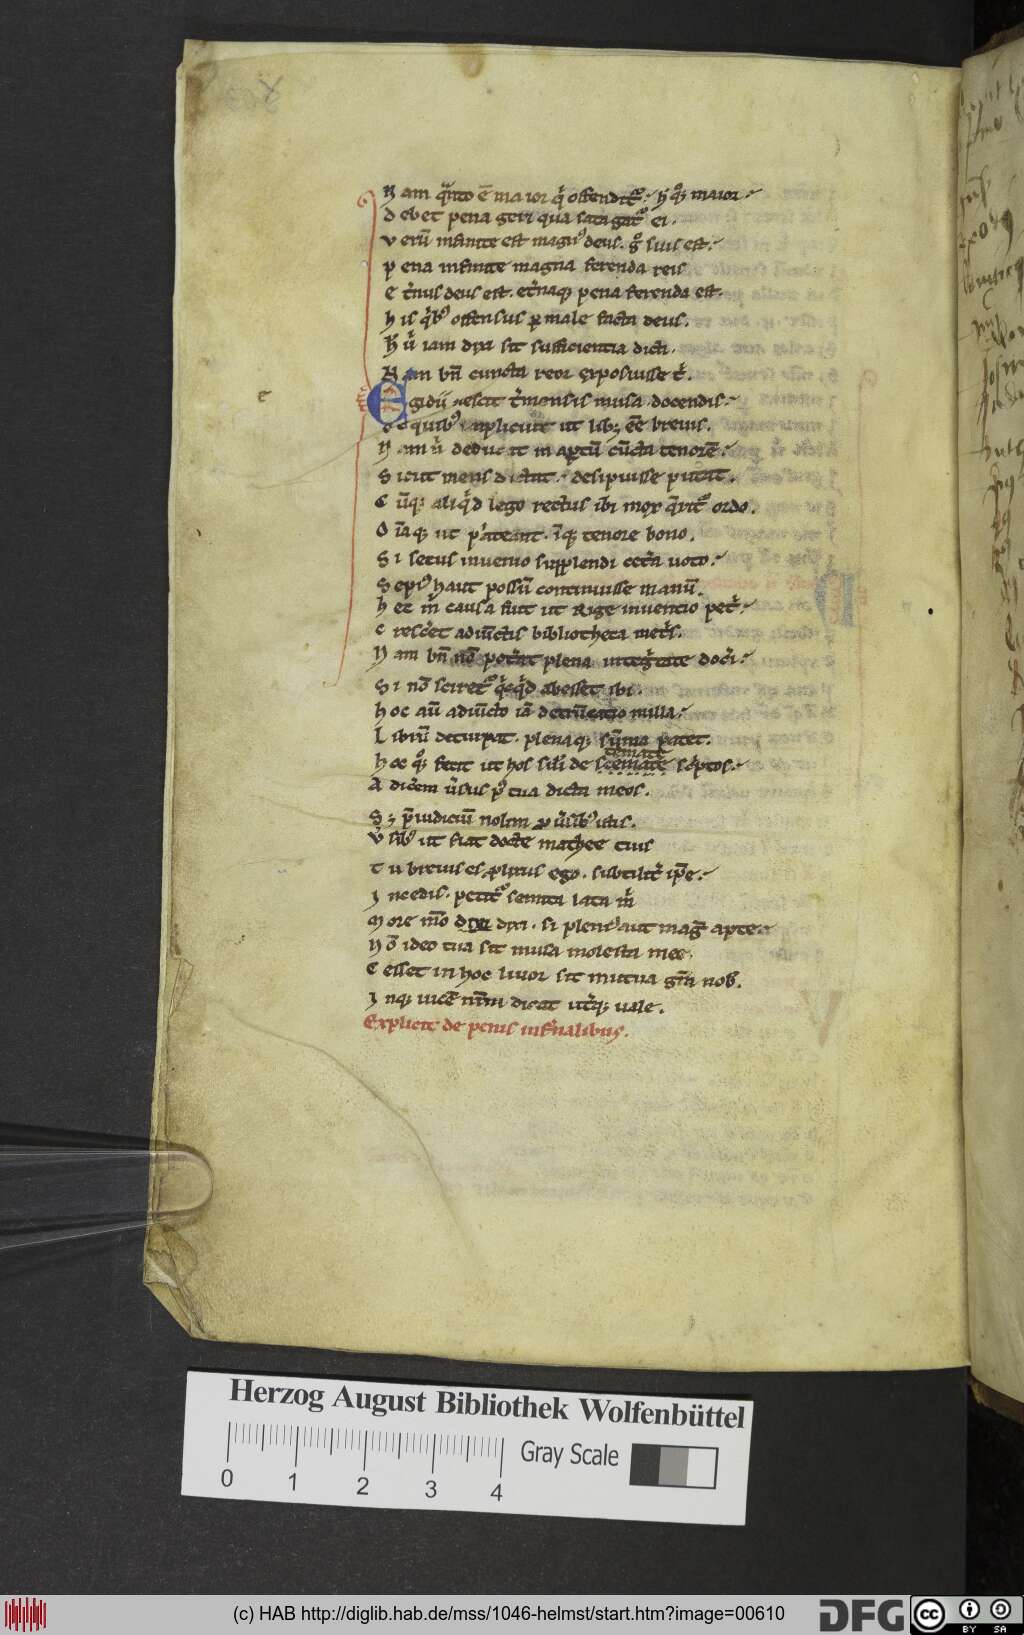 N am q̃nto ē maior q̇ offendit᷑ ⁊ hq̊ꝫ maior
D ebet pena geri qua satagat᷑ ei.
V erũ infinite est magnꝰ deus. g̊ suis est
P ena infinite magna ferenda reis
E t͛nus deus est. et͛naqꝫ pena ferenda est.
H is q̇bꝰ offensus ꝑ male facta deus.
H ũ iam dixi sit sufficientia dicti.
N am bñ cuncta reor exposuisse t͛.
E gidii nescit t͛monsis musa docendis
D e quibꝰ implicuit ut libꝫ eẽ breuis.
deducit in aptũ cũcta tenorẽ
S icut mens dictat desipuisse putat.
C ũqꝫ aliq̇d lego rectus ibi mox q̃rit᷑ ordo.
O ĩaqꝫ ut pateant. ĩqꝫ tenore bono.
S i secus inuenio supplendi cet͛a uoto
S epiꝰ haut possũ continuisse manũ.
H ec m̃ causa fuit ut Rige inuentio pet͛
C resc͛et adiũctis bibliotheca met͛s.
N am bñ nõ pot͛at plena integ͛tate doc͛i
S i nõ sciret᷑ q̇cq̇d abesset ibi.
H oc aũ adiũcto iã detrũcatio nulla
L ibrũ decurpat. plenaqꝫ sũma patet.
temate
H oc q̊ꝫ fecit ut hos sili de scemate sc͛ptos
A dic͛em u͛sus pꝰ tua dicta meos.
S ꝫ p̃iudiciũ nolim ꝑ u͛sibꝰ istis.
V͛ sibꝰ ut fiat docte mathee tuis
T u breuis es ꝓlixus ego. subtilit͛ ip̃e
I ncedis. petit᷑ semita lata m̃
M ore m̃o dixi dixi. si pleniꝰ aut mag̃ apte
N õ ideo tua sit musa molesta mee.
C esset in hoc liuor sit mutua gr̃a nob̃.
I nqꝫ uicẽ nr̃m dicat ut͛qꝫ uale.
Explicit de penis infernalibus.
e
Herzog August Bibliothek Wolfenbüttel
Gray Scale
0 1 2 3 4
(c) HAB http://diglib.hab.de/mss/1046-helmst/start.htm?image=00610
DFG
cc
BY SA